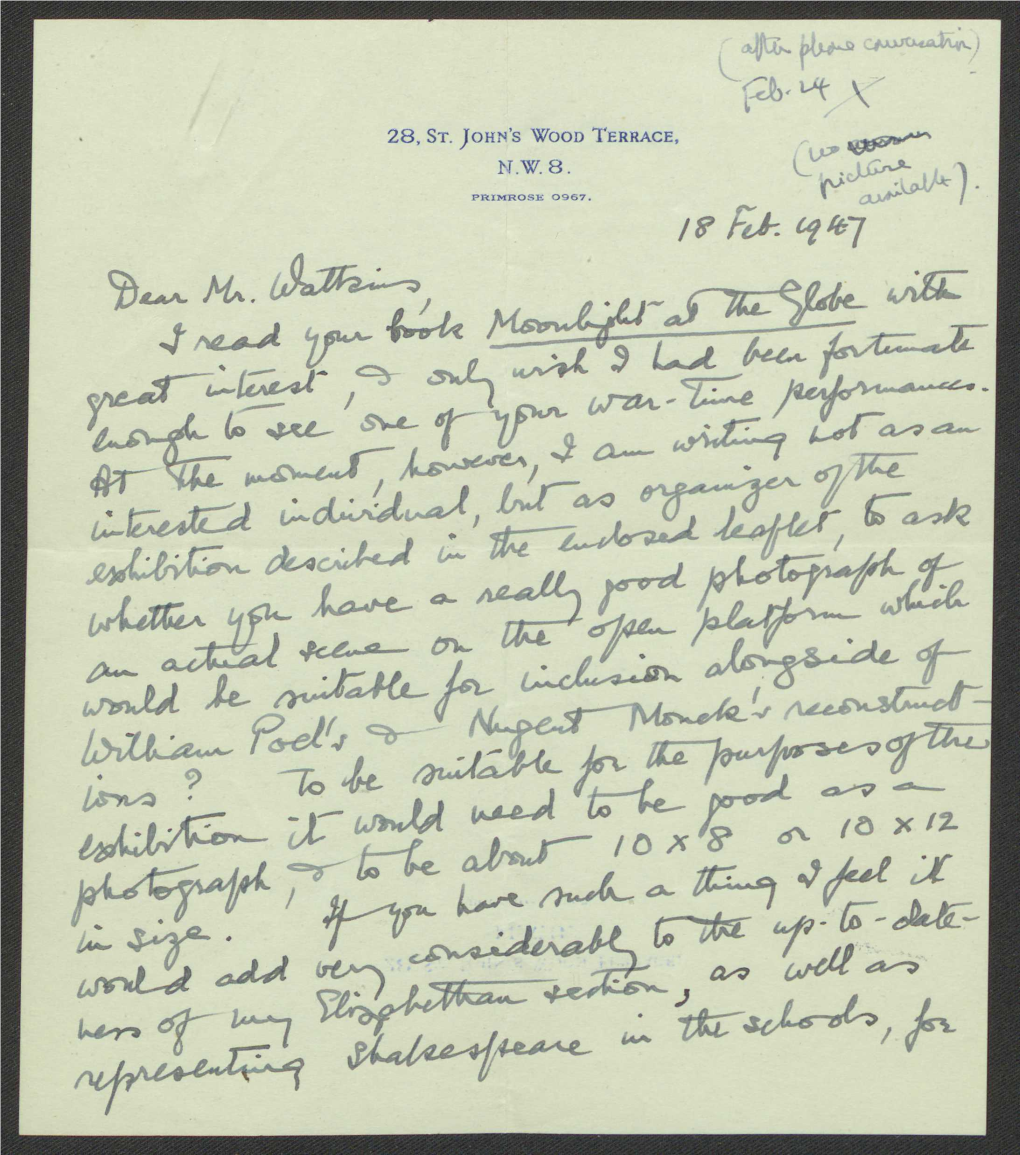 (after phone conversation)
Feb. 24 X
28, ST. JOHN'S WOOD TERRACE,
N.W. 8.
PRIMROSE 0967.
(no
picture
available).
18 Feb. 1947
Dear Mr. Watkins,
I read your book Moonlight at the Globe with
great interest, & only wish I had been fortunate
enough to see one of your war-time performances.
At the moment, however, I am writing not as an
interested individual, but as organizer of the
exhibition described in the enclosed leaflet, to ask
whether you have a really good photograph of
an actual scene on the open platform which
would be suitable for inclusion alongside of
William Poel's & Nugent Monck's reconstruct-
ions? To be suitable for the purposes of the
exhibition it would need to be good as a
photograph, & to be about 10 x 8 or 10 x 12
in size. If you have such a thing I feel it
would add very considerably to the up-to-date-
ness of my Elizabethan section, as well as
representing Shakespeare in the schools, for